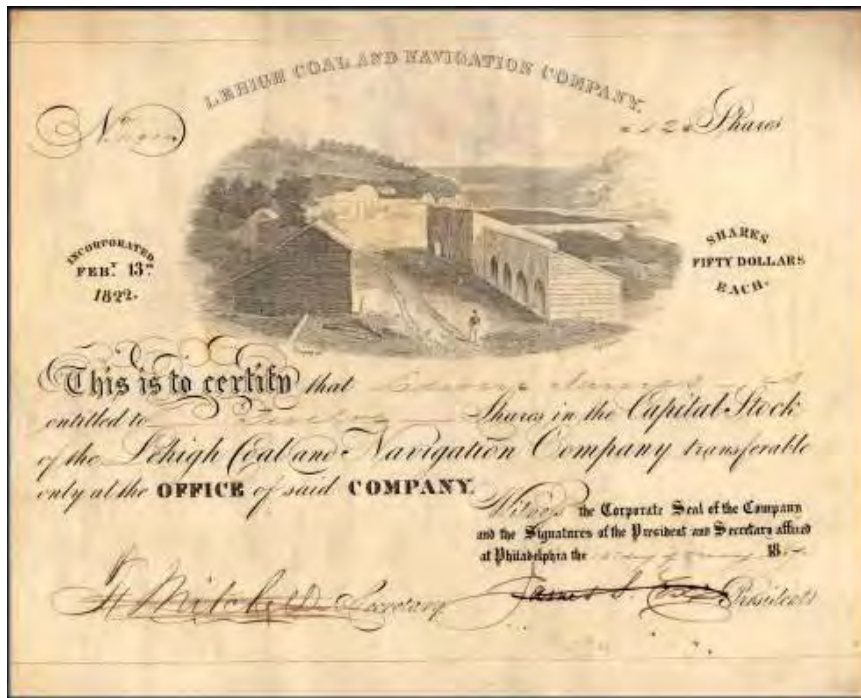 LEHIGH COAL AND NAVIGATION COMPANY.
No
Shares
INCORPORATED
FEBY. 13TH
1822.
SHARES
FIFTY DOLLARS
EACH.
This is to certify that
entitled to Shares in the Capital Stock
of the Lehigh Coal and Navigation Company transferable
only at the OFFICE of said COMPANY.
Witness the Corporate Seal of the Company
and the Signatures of the President and Secretary affixed
at Philadelphia the day of 18
Mitchell Secretary
James S. Cox President